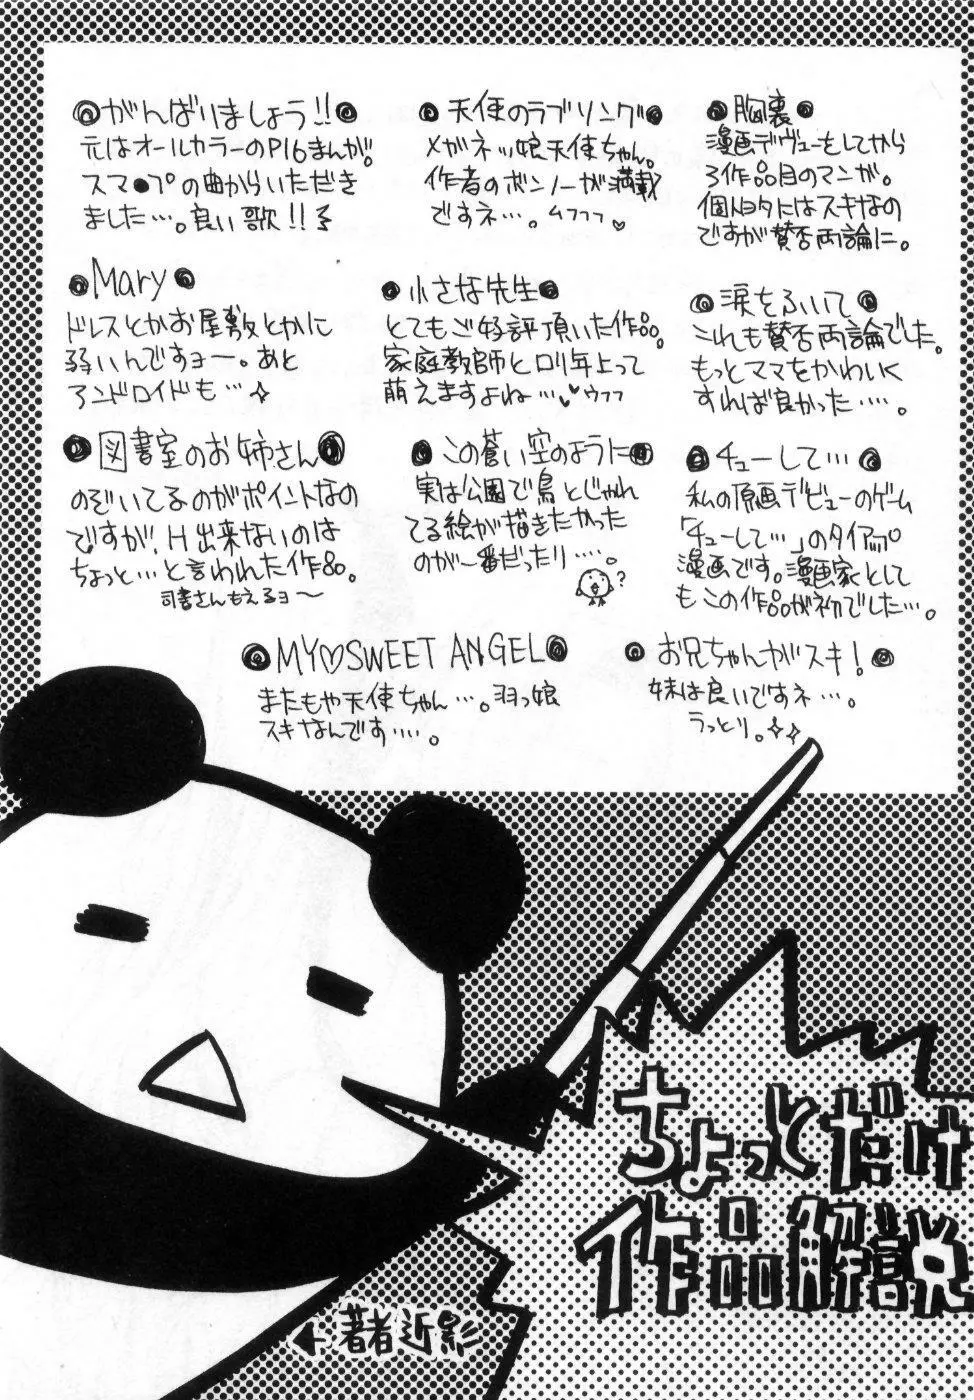 胸裏
漫画デヴューをしてから
3作品目のマンガ。
個人的にはスキなの
ですが賛否両論に。
天使のラブソング
メガネッ娘天使ちゃん。
作者のボンノーが満載
ですネ…。ムフフフ♥
がんばりましょう!!
元はオールカラーのP16まんが。
スマ●プの曲からいただき
ました…。良い歌!!
涙をふいて
これも賛否両論でした。
もっとママをかわいく
すれば良かった……。
小さな先生
とてもご好評頂いた作品。
家庭教師とロリ年上って
萌えますよね…♥ウフフ
Mary
ドレスとかお屋敷とかに
弱いんですョー。あと
アンドロイドも…☆
チューして…
私の原画デビューのゲーム
「チューして…」のタイアップ
漫画です。漫画家として
もこの作品が初でした…。
この蒼い空のように
実は公園で鳥とじゃれ
てる絵が描きたかった
のが一番だったり……。
?
図書室のお姉さん
のぞいてるのがポイントなの
ですが、H出来ないのは
ちょっと…と言われた作品。
司書さんもえるョ〜
お兄ちゃんがスキ!
妹は良いですネ…。
うっとり。☆☆
MY♡SWEET ANGEL
またもや天使ちゃん…。羽っ娘
スキなんです……。
ちょっとだけ
作品解説
←著者近影